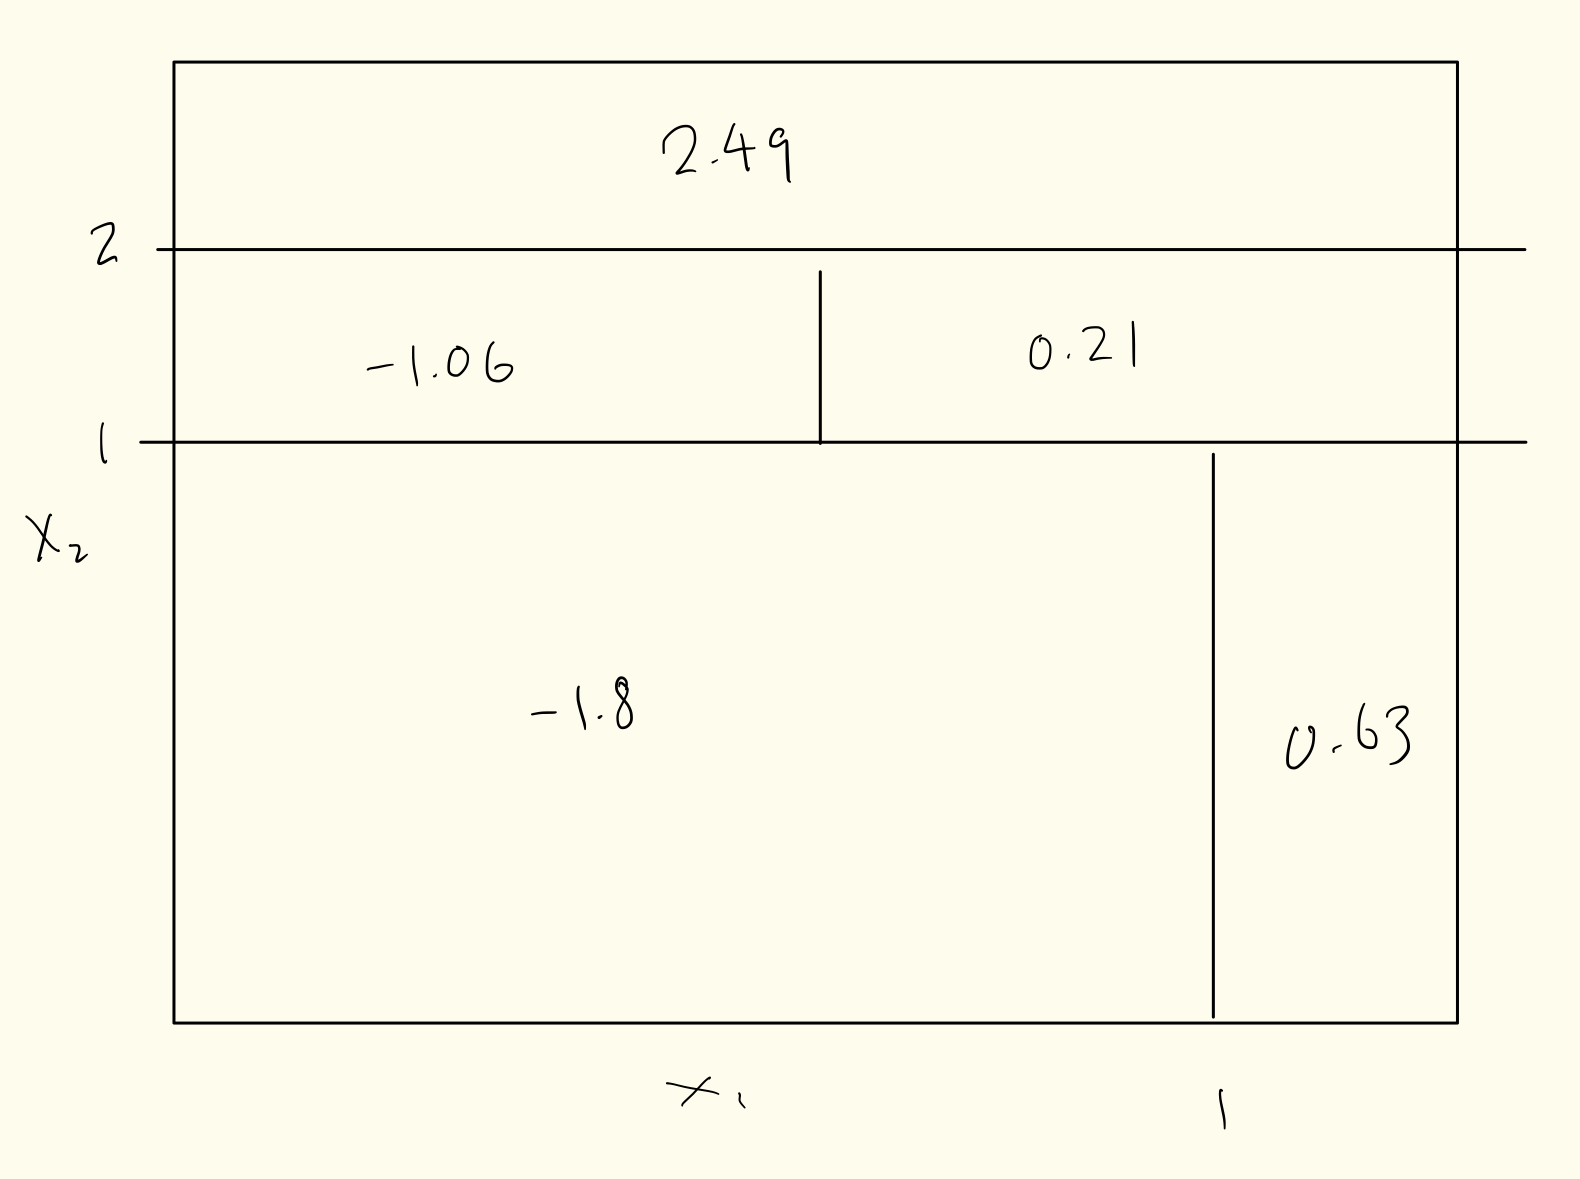 2.49
2
-1.06
0.21
1
X2
-1.8
0.63
X1
1